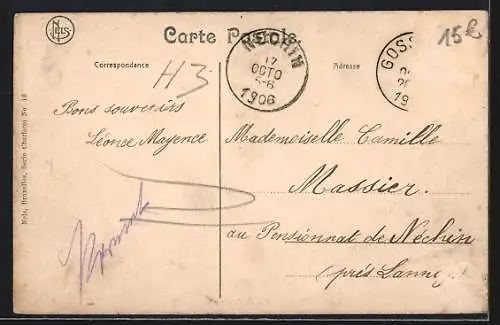 Carte Postale
15€
NÉCHIN
17
OCTO
5-6
1906
GOSS
19
Correspondance
Adresse
H3
Bons souvenirs
Léonce Mayence
Mademoiselle Camille
Massier.
au Pensionnat de Néchin
(près Lannoy
Nels, Bruxelles, Serie Charleroi No 18